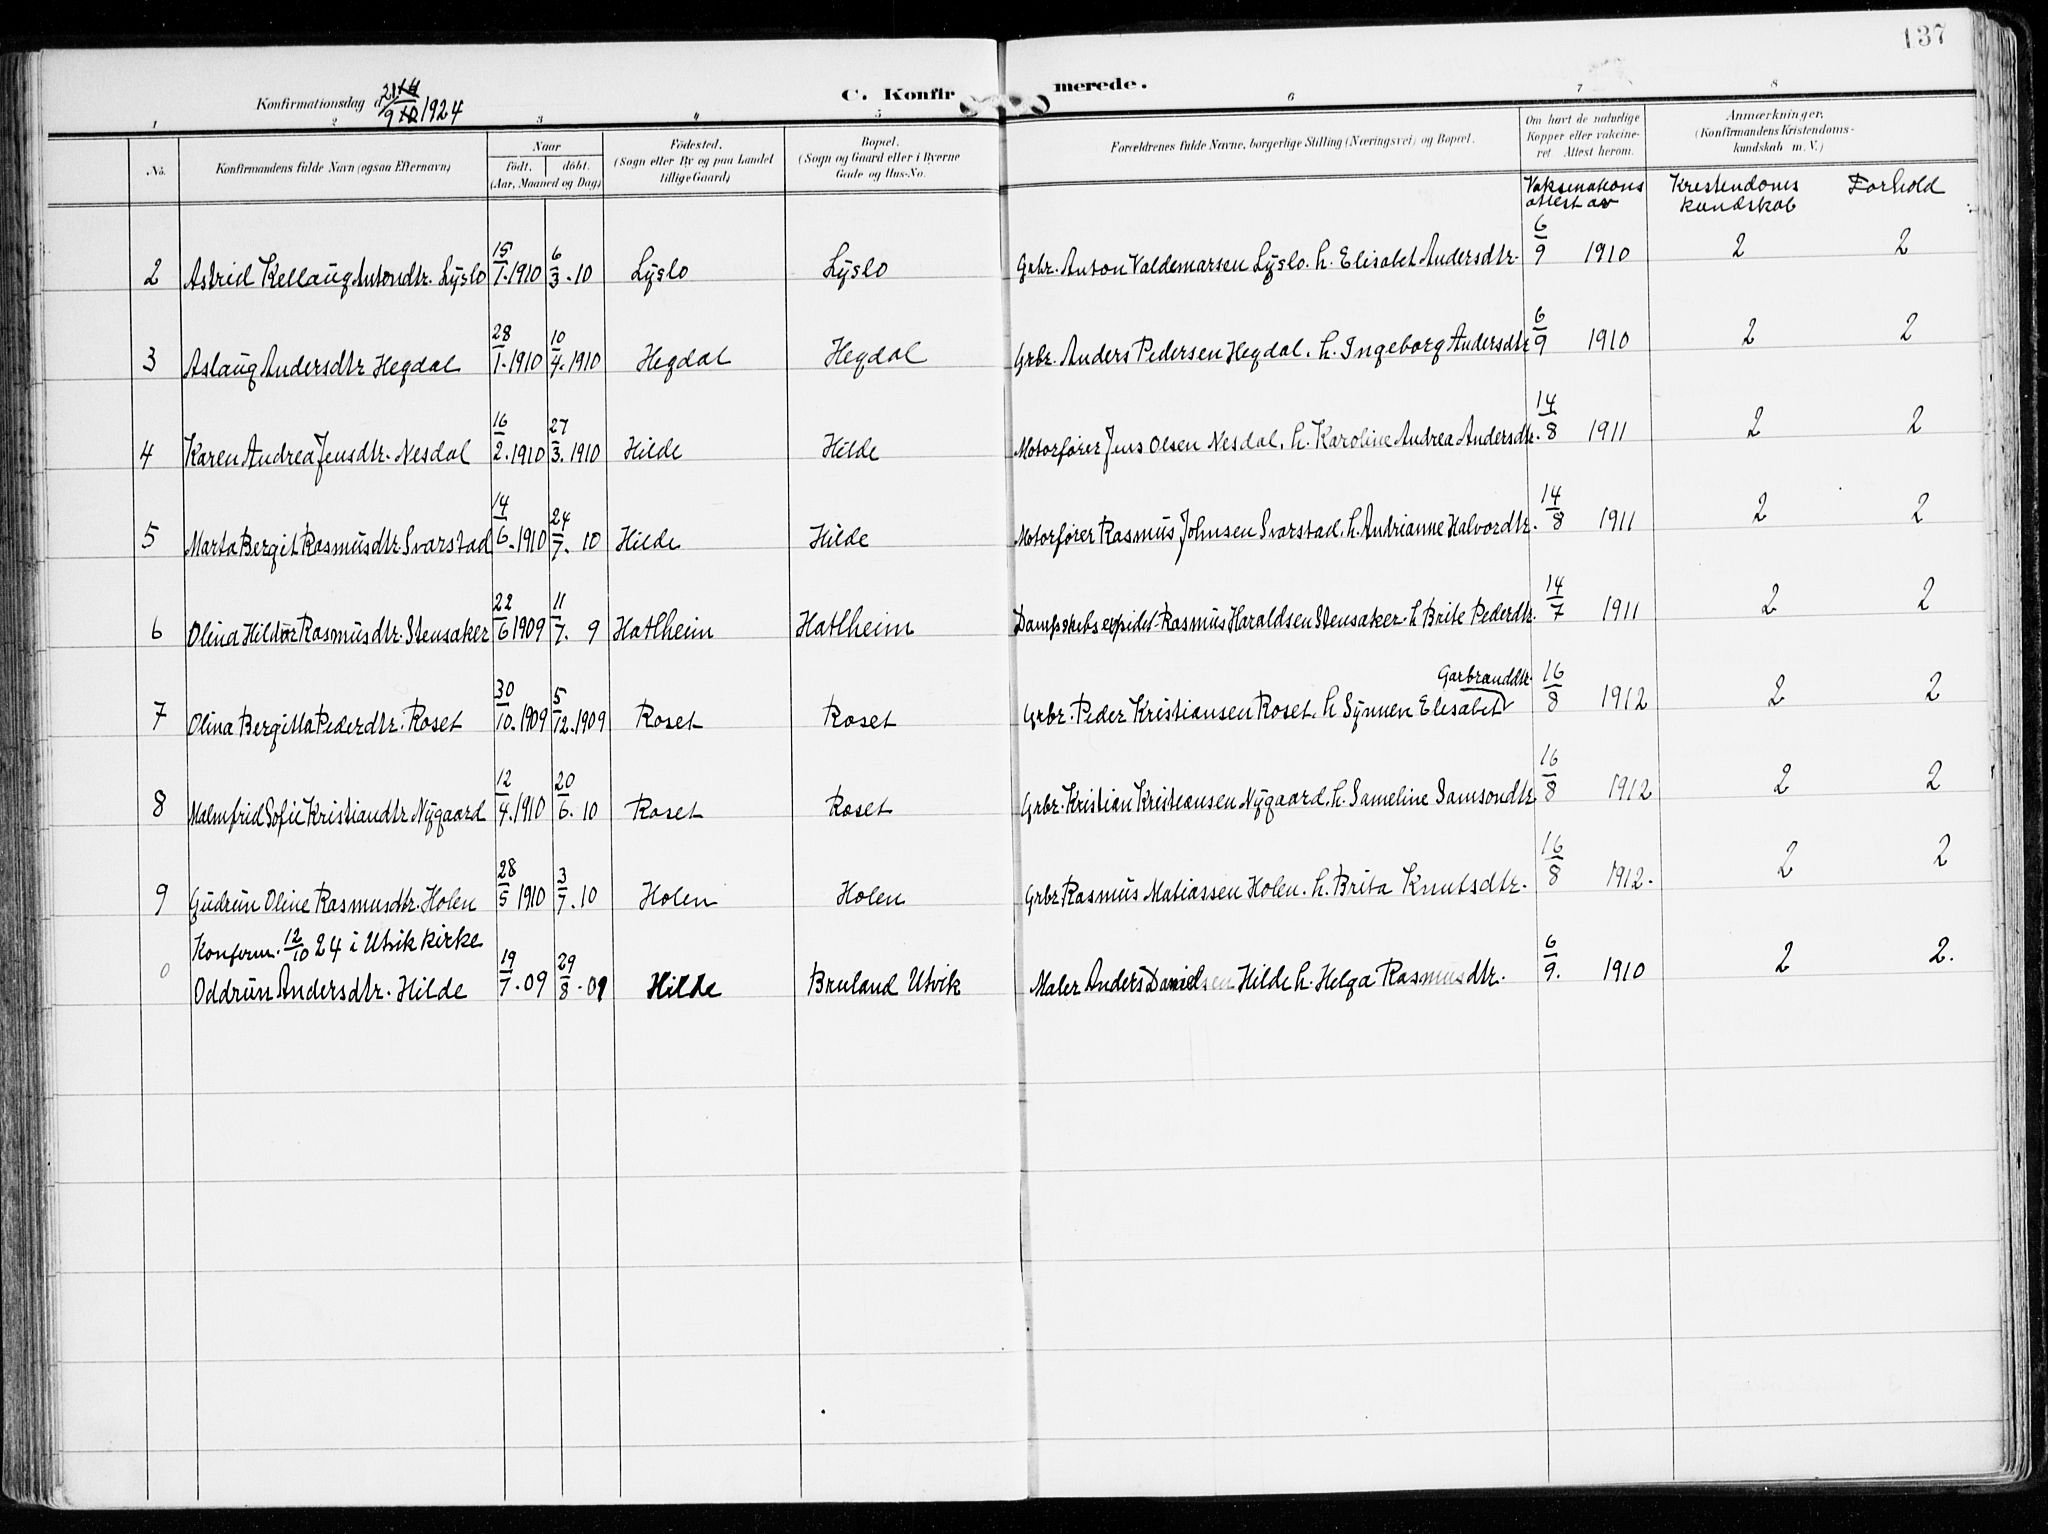 137
Konfirmationsdag d 21/9 14/10 1924
C. Konfir merede.
1 2 3 4 5 6 7 8
No. Konfirmandens fulde Navn (ogsaa Efternavn) Naar födt. döbt. (Aar, Maaned og Dag) Födested. (Sogn eller By og paa Landet tillige Gaard) Bopæl. (Sogn og Gaard eller i Byerne Gade og Hus-No. Forældrenes fulde Navne, borgerlige Stilling (Næringsvei) og Bopæl. Om havt de naturlige Kopper eller vakcineret. Attest herom. Anmærkninger. (Konfirmandens Kristendomskundskab m. V.)
Vaksinations attest av Kristendoms kundskab Forhold
2 Astrid Kellaug Antondtr. Lyslo 15/1.1910 6/3.10 Lyslo Lyslo Grbr. Anton Valdemarsen Lyslo. h. Elisabet Andersdtr. 6/9 1910 2 2
3 Aslaug Andersdtr Hegdal 28/1.1910 10/4.1910 Hegdal Hegdal Grbr. Anders Pedersen Hegdal. h. Ingeborg Andersdtr 6/9 1910 2 2
4 Karen Andrea Jensdtr. Nesdal 16/2.1910 27/3.1910 Hilde Hilde Motorfører Jens Olsen Nesdal. h. Karoline Andrea Andersdtr. 14/8 1911 2 2
5 Marta Bergit Rasmusdtr. Svarstad 14/6.1910 24/7. 10 Hilde Hilde Motorfører Rasmus Johnsen Svarstad. h. Andrianne Halvordtr. 14/8 1911 2 2
6 Olina Hildur Rasmusdtr. Stensaker 22/6 1909 11/7. 9 Hatlheim Hatlheim Dampskibsexpidit. Rasmus Haraldsen Stensaker. h Brite Pederdtr. 14/7 1911 2 2
7 Olina Bergitta Pederdtr. Roset 30/10.1909 5/12.1909 Roset Roset Grbr. Peder Kristiansen Roset. h Synnen Elisabet Garbranddtr. 16/8 1912 2 2
8 Malmfrid Sofie Kristiandtr Nygaard 12/4.1910 20/6.10 Roset Roset Grbr. Kristian Kristiansen Nygaard. h. Sameline Samsondtr 16/8 1912 2 2
9 Gudrun Oline Rasmusdtr. Holen 28/5 1910 3/7.10 Holen Holen Grbr Rasmus Matiassen Holen. h. Brita Knutsdtr. 16/8 1912. 2 2
Konferm. 12/10 24 i Utvik kirke
0 Oddrun Andersdtr. Hilde 19/7.09 29/8.09 Hilde Bruland Utvik Maler Anders Danielsen Hilde h. Helga Rasmusdtr. 6/9. 1910 2 2.